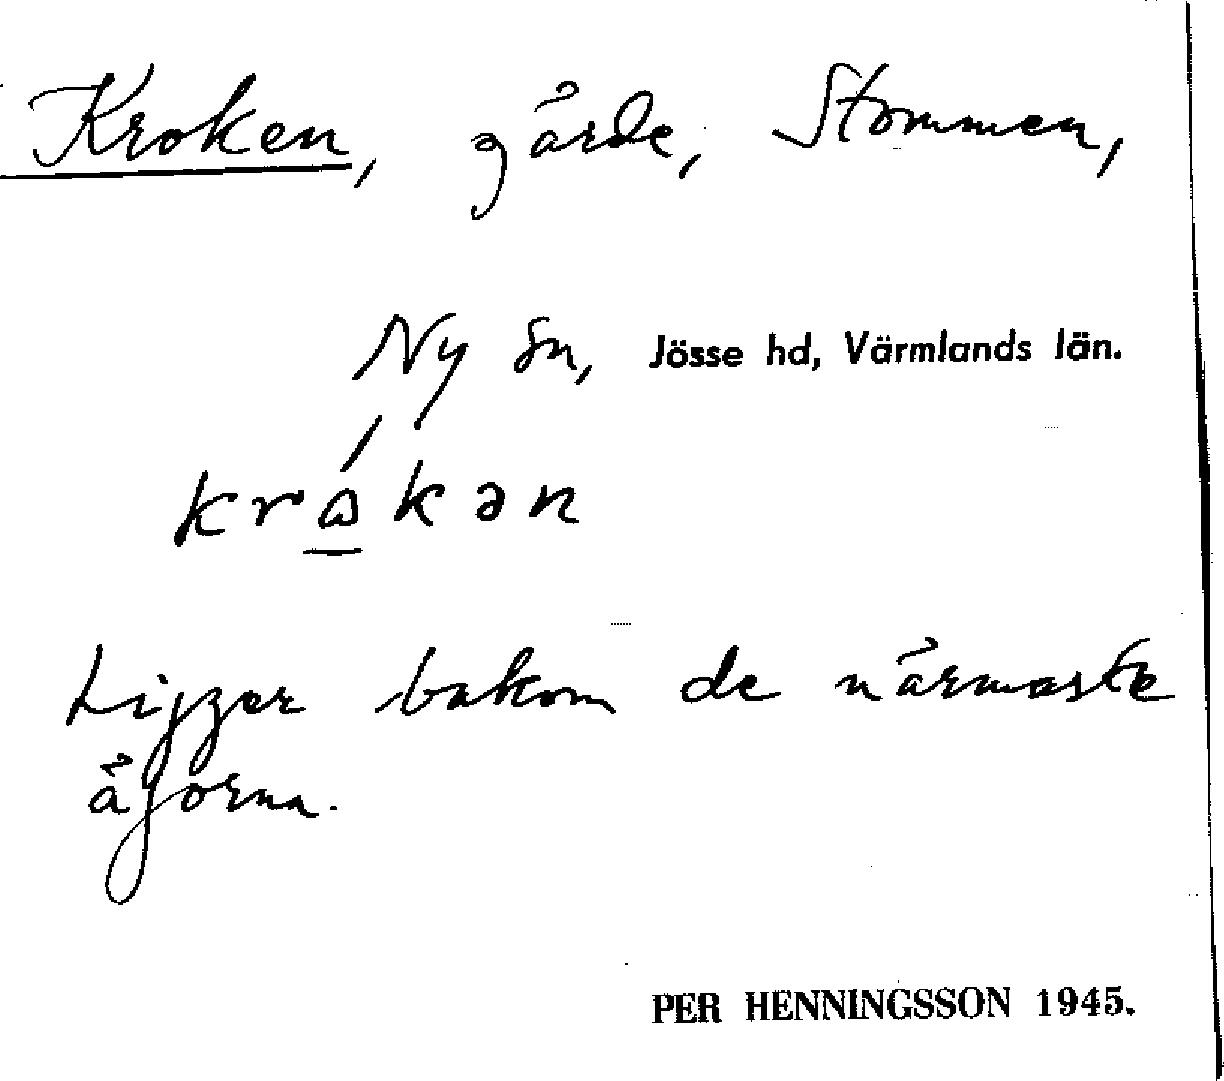 Kroken, gärde, Stommen,
Ny sn, Jösse hd, Värmlands län.
krɷ́kən
Ligger bakom de närmaste
ägorna.
PER HENNINGSSON 1945.